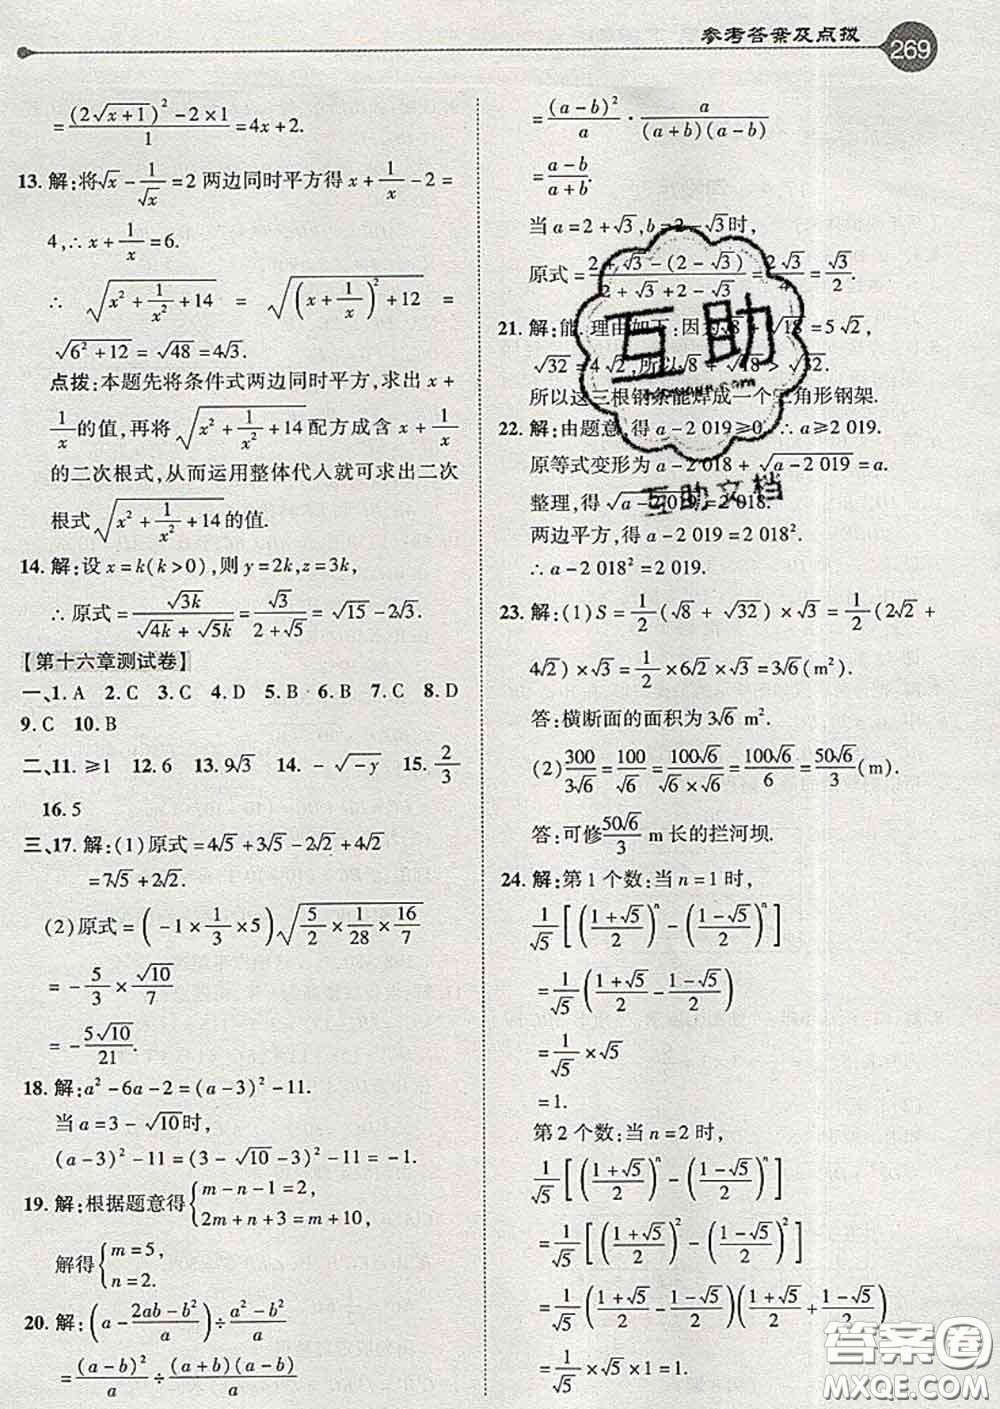 参考答案及点拨 269
= \frac{(2\sqrt{x+1})^2-2×1}{1}=4x+2.
13. 解:将√x-\frac{1}{√x}=2两边同时平方得x+\frac{1}{x}-2=
4,∴x+\frac{1}{x}=6.
∴ \sqrt{x^2+\frac{1}{x^2}+14} = \sqrt{(x+\frac{1}{x})^2+12} =
\sqrt{6^2+12}=√48=4√3.
点拨:本题先将条件式两边同时平方,求出x+
\frac{1}{x}的值,再将\sqrt{x^2+\frac{1}{x^2}+14}配方成含x+\frac{1}{x}
的二次根式,从而运用整体代人就可求出二次
根式\sqrt{x^2+\frac{1}{x^2}+14}的值.
14. 解:设x=k(k>0),则y=2k,z=3k,
∴原式=\frac{\sqrt{3k}}{\sqrt{4k}+\sqrt{5k}}=\frac{√3}{2+√5}=√15-2√3.
【第十六章测试卷】
一、1. A 2. C 3. C 4. D 5. B 6. B 7. C 8. D
9. C 10. B
二、11. ≥1 12. 6 13. 9√3 14. -\sqrt{-y} 15. \frac{2}{3}
16. 5
三、17. 解:(1)原式=4√5+3√5-2√2+4√2
=7√5+2√2.
(2)原式=(-1×\frac{1}{3}×5)\sqrt{\frac{5}{2}×\frac{1}{28}×\frac{16}{7}}
=-\frac{5}{3}×\frac{√10}{7}
=-\frac{5√10}{21}.
18. 解:a²-6a-2=(a-3)²-11.
当a=3-√10时,
(a-3)²-11=(3-√10-3)²-11=-1.
19. 解:根据题意得{m-n-1=2,
2m+n+3=m+10,
解得{m=5,
n=2.
20. 解:(a-\frac{2ab-b²}{a})÷\frac{a²-b²}{a}
=\frac{(a-b)²}{a}÷\frac{(a+b)(a-b)}{a}
=\frac{(a-b)²}{a}·\frac{a}{(a+b)(a-b)}
=\frac{a-b}{a+b}.
当a=2+√3,b=2-√3时,
原式=\frac{2+√3-(2-√3)}{2+√3+2-√3}=\frac{2√3}{4}=\frac{√3}{2}.
21. 解:能.理由如下:因为√8+√18=5√2,
√32=4√2,所以√8+√18>√32.
所以这三根钢条能焊成一个三角形钢架.
22. 解:由题意,得a-2 019≥0,∴a≥2 019.
原等式变形为a-2 018+\sqrt{a-2 019}=a.
整理,得\sqrt{a-2 019}=2 018.
两边平方,得a-2 019=2 018².
∴a-2 018²=2 019.
23. 解:(1)S=\frac{1}{2}(√8+√32)×√3=\frac{1}{2}(2√2+
4√2)×√3=\frac{1}{2}×6√2×√3=3√6(m²).
答:横断面的面积为3√6 m².
(2)\frac{300}{3√6}=\frac{100}{√6}=\frac{100√6}{√6×√6}=\frac{100√6}{6}=\frac{50√6}{3}(m).
答:可修\frac{50√6}{3} m长的拦河坝.
24. 解:第1个数:当n=1时,
\frac{1}{√5}[(\frac{1+√5}{2})^n-(\frac{1-√5}{2})^n]
=\frac{1}{√5}(\frac{1+√5}{2}-\frac{1-√5}{2})
=\frac{1}{√5}×√5
=1.
第2个数:当n=2时,
\frac{1}{√5}[(\frac{1+√5}{2})^n-(\frac{1-√5}{2})^n]
=\frac{1}{√5}[(\frac{1+√5}{2})²-(\frac{1-√5}{2})²]
=\frac{1}{√5}(\frac{1+√5}{2}-\frac{1-√5}{2})(\frac{1+√5}{2}+\frac{1-√5}{2})
=\frac{1}{√5}×√5×1
互助
互助文档
答案圈
MXQE.COM